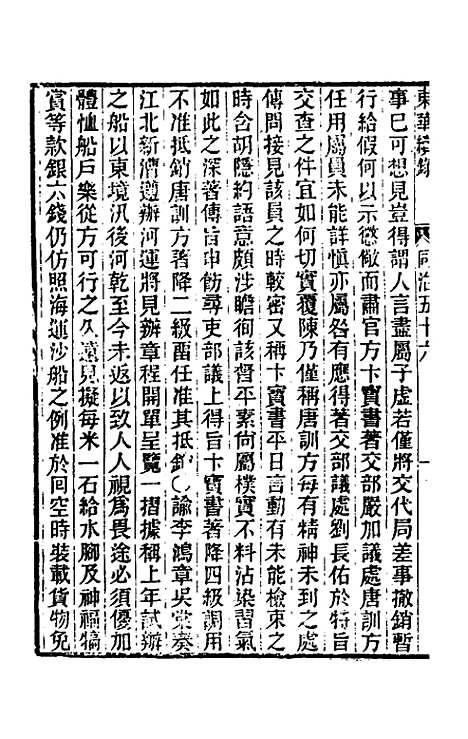 東華續錄 同治五十六 一
事已可想見豈得謂人言盡屬子虛若僅將交代局差事撤銷暫
行給假何以示懲儆而肅官方卞寶書著交部嚴加議處唐訓方
任用屬員未能詳慎亦屬咎有應得著交部議處劉長佑於特旨
交查之件宜如何切實覆陳乃僅稱唐訓方每有精神未到之處
傳問接見該員之時較密又稱卞寶書平日言動有未能檢束之
時含胡隱約語意頗涉瞻徇該督平素向屬樸實不料沾染習氣
如此之深著傳旨申飭尋吏部議上得旨卞寶書著降四級調用
不准抵銷唐訓方著降二級留任准其抵銷〇諭李鴻章吳棠奏
江北新漕遵辦河運將見辦章程開單呈覽一摺據稱上年試辦
之船以東境汛後河乾至今未返以致人人視爲畏途必須優加
體恤船戶樂從方可行之久遠見擬每米一石給水腳及神福犒
賞等款銀六錢仍仿照海運沙船之例准於回空時裝載貨物免